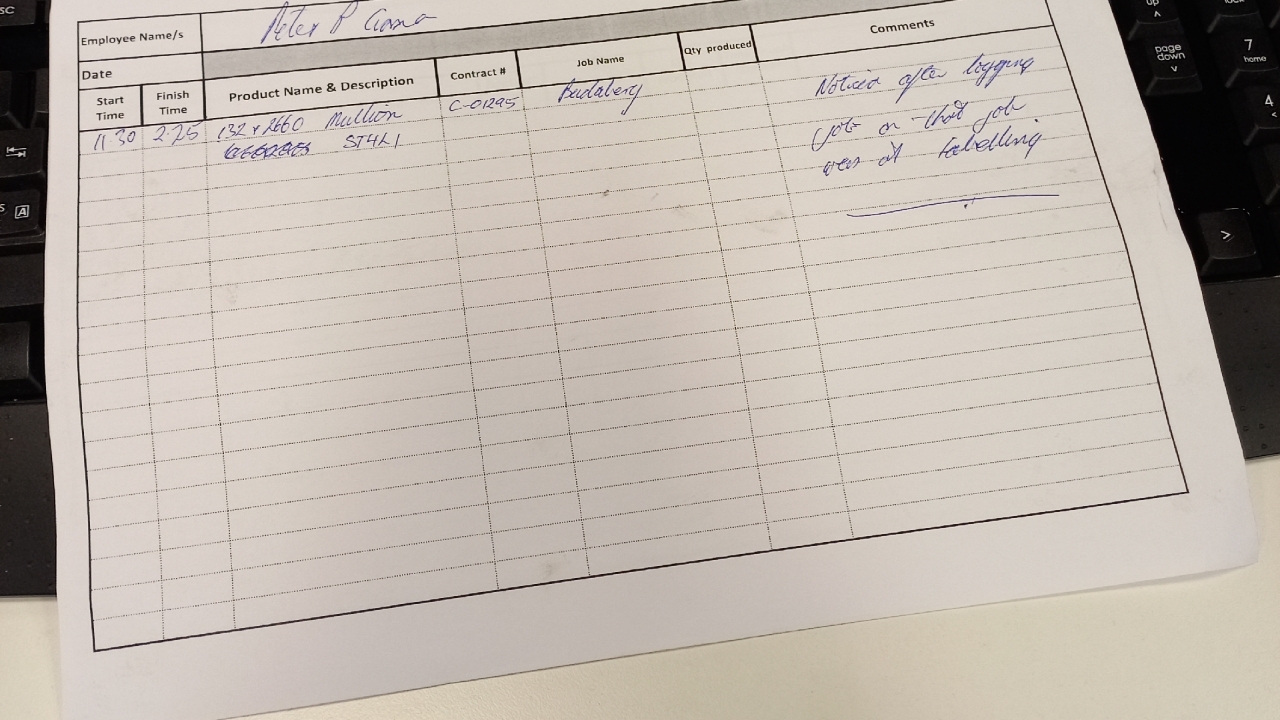 Employee Name/s Peter P
Date
Start Time Finish Time Product Name & Description Contract # Job Name Qty produced Comments
11.30 2.25 132 x 2660 Mullion C-01295
ST4L1
Notice after logging
job on that job
was at labelling
SC
A
page down
up
7 home
4
>